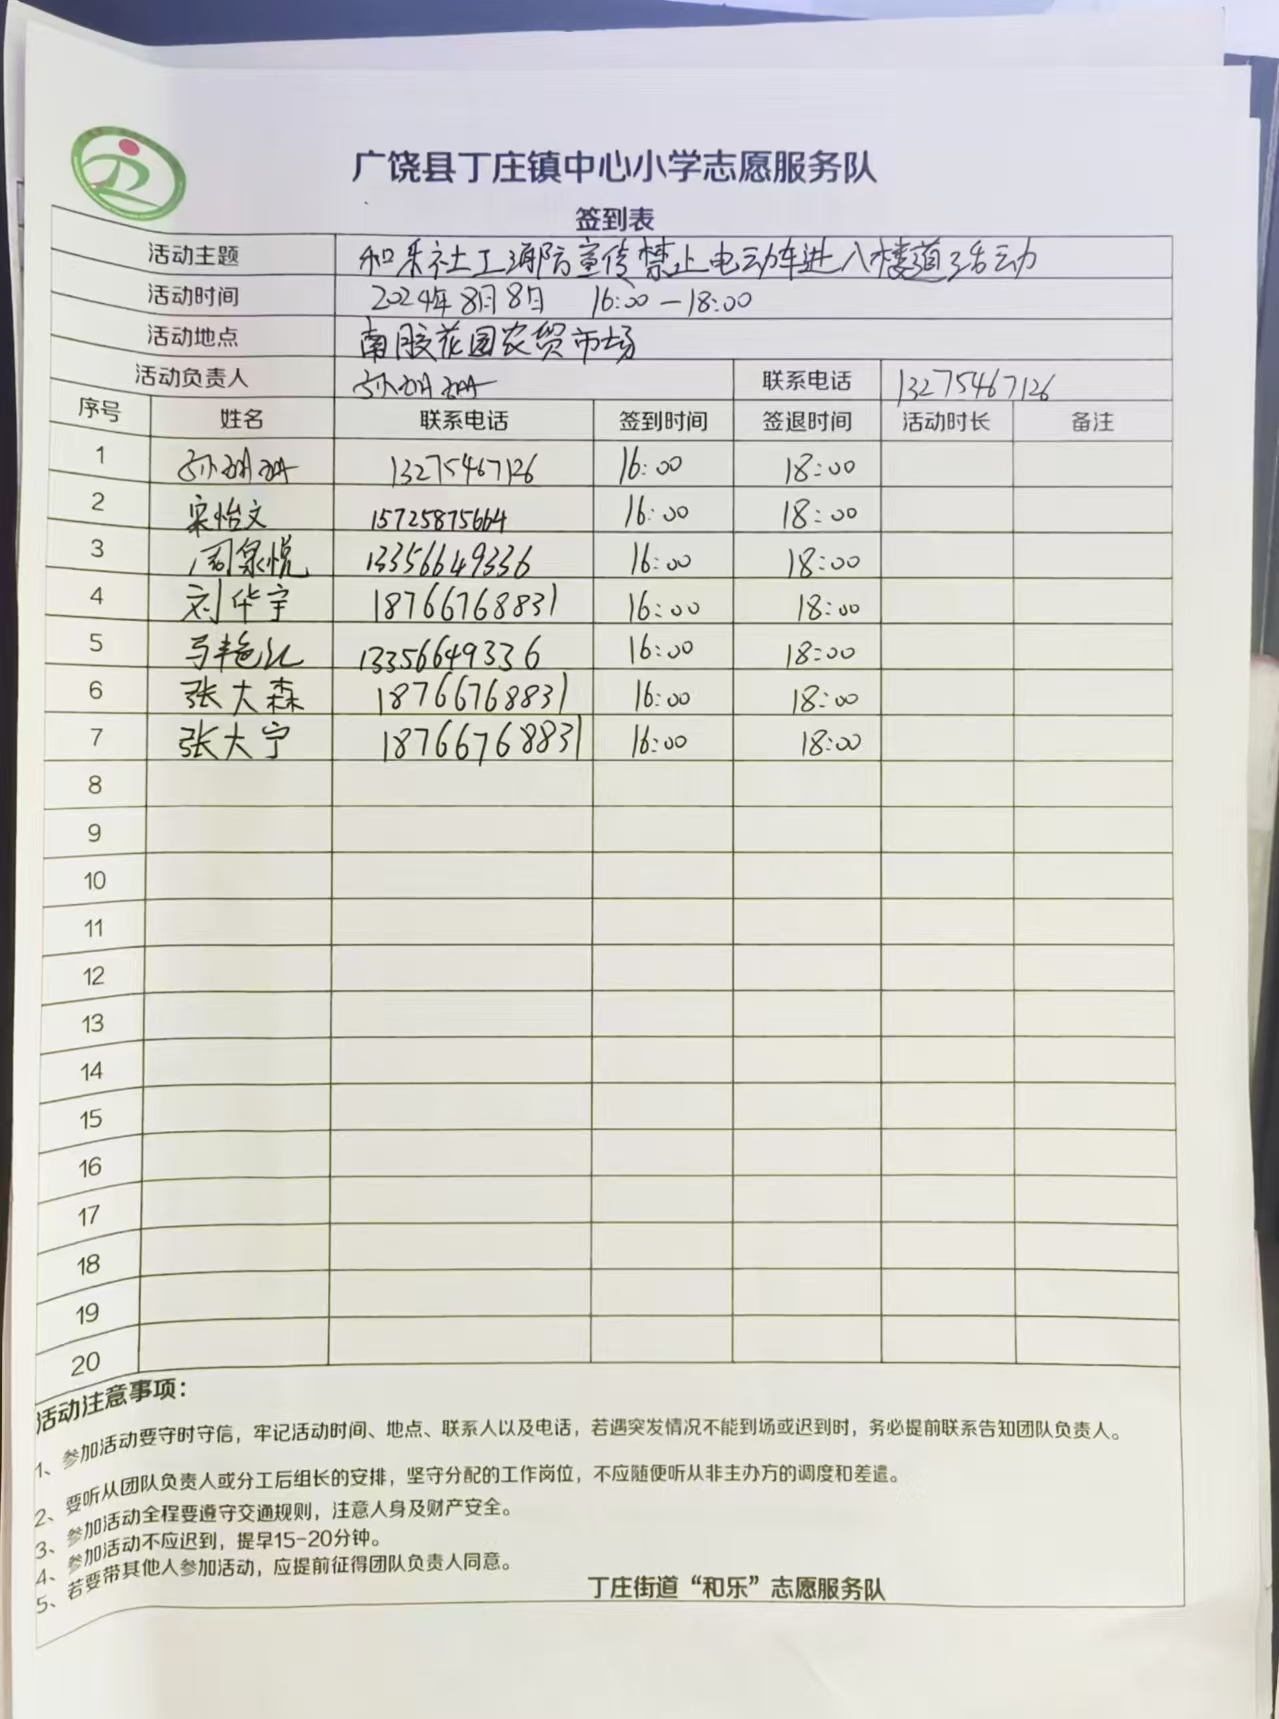 广饶县丁庄镇中心小学志愿服务队
签到表
活动主题 和乐社工消防宣传禁止电动车进入楼道活动
活动时间 2024年8月8日 16:00—18:00
活动地点 南胶花园农贸市场
活动负责人 孙姗姗 联系电话 13275467126
序号 姓名 联系电话 签到时间 签退时间 活动时长 备注
1 孙姗姗 13275467126 16:00 18:00
2 宋怡文 15725875664 16:00 18:00
3 周泉悦 13356649336 16:00 18:00
4 刘华宇 18766768831 16:00 18:00
5 马艳红 13356649336 16:00 18:00
6 张大森 18766768831 16:00 18:00
7 张大宁 18766768831 16:00 18:00
8
9
10
11
12
13
14
15
16
17
18
19
20
活动注意事项：
1、参加活动要守时守信，牢记活动时间、地点、联系人以及电话，若遇突发情况不能到场或迟到时，务必提前联系告知团队负责人。
2、要听从团队负责人或分工后组长的安排，坚守分配的工作岗位，不应随便听从非主办方的调度和差遣。
3、参加活动全程要遵守交通规则，注意人身及财产安全。
4、参加活动不应迟到，提早15-20分钟。
5、若要带其他人参加活动，应提前征得团队负责人同意。
丁庄街道“和乐”志愿服务队